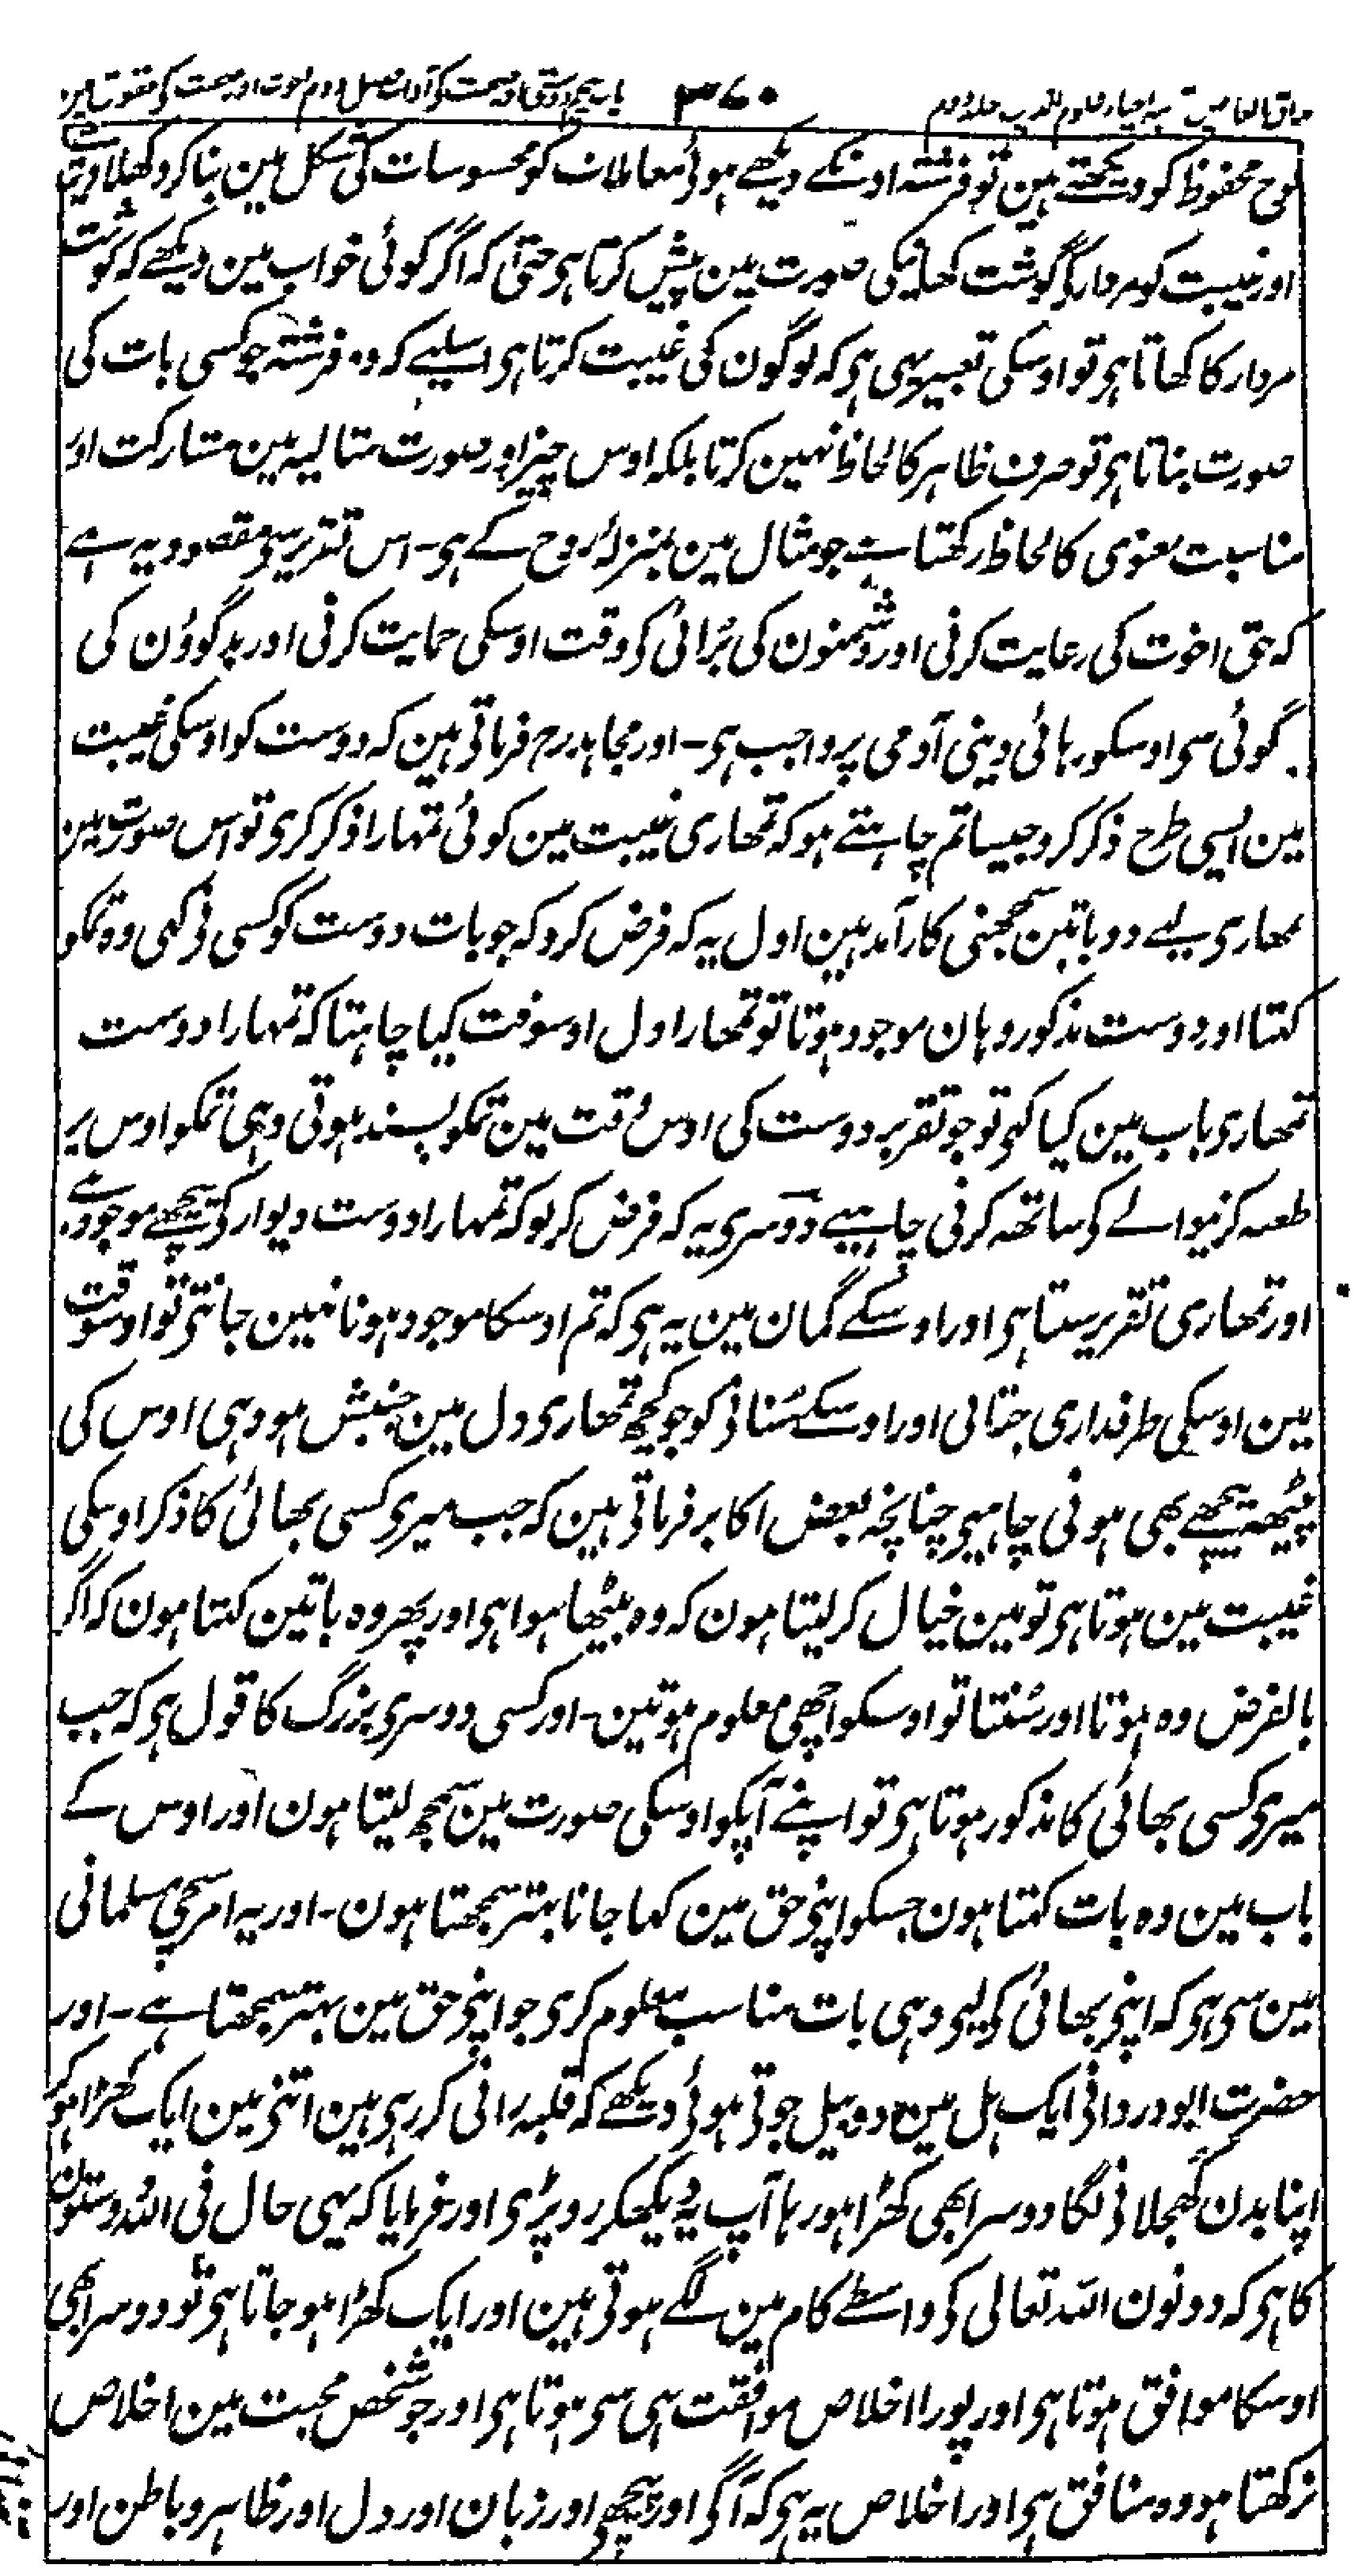 مذاق العارفین ترجمہ احیاء علوم الدین جلد دوم ۳۶۰ باب پنجم دوستی اور صحبت کے آداب فصل دوم اخوت اور صحبت کے حقوق مین
لوح محفوظ کو دیکھتے ہین تو فرشتہ اونکے دیکھے ہوئے معاملات کو محسوسات کی شکل مین بنا کر دکھلا دیتا ہے
اور غیبت کو مردار کا گوشت کھانیکی صورت مین پیش کرتا ہی حتی کہ اگر کوئی خواب مین دیکھے کہ گوشت
مردار کا کھاتا ہی تو اوسکی تعبیر یہی ہی کہ لوگون کی غیبت کرتا ہی اسلیے کہ وہ فرشتہ جو کسی بات کی
صورت بناتا ہی تو صرف ظاہر کا لحاظ نہین کرتا بلکہ اوس چیز اور صورت مثالیہ مین مشارکت اور
مناسبت معنوی کا لحاظ رکھتا ہے جو مثال مین بمنزلہ روح کے ہی۔ اس تقریر سی مقصود یہ ہے
کہ حق اخوت کی رعایت کرنی اور دشمنون کی برائی کے وقت اوسکی حمایت کرنی اور بدگوؤن کی
گوئی سی اوسکو رہائی دینی آدمی پر واجب ہی۔ اور مجاہد رح فرماتی ہین کہ دوست کو اوسکی غیبت
مین ایسی طرح ذکر کرو جیسا تم چاہتے ہو کہ تمھاری غیبت مین کوئی تمہارا ذکر کری تو اس صورت مین
تمھاری لیے دو باتین سمجھنی کارآمد ہین اول یہ کہ فرض کرو کہ جو بات دوست کو کسی نی کہی وہ تمکو
کہتا اور دوست مذکور وہان موجود ہوتا تو تمھارا دل اوسوقت کیا چاہتا کہ تمہارا دوست
تمھاری باب مین کیا کہی تو جو تقریر دوست کی اوس وقت مین تمکو پسند ہوتی وہی تمکو اوس پر
طعنہ کرنیوالے کے ساتھہ کرنی چاہیے دوسری یہ کہ فرض کر لو کہ تمہارا دوست دیوار کے پیچھے موجود ہے
اور تمھاری تقریر سنتا ہی اور اوسکے گمان مین یہ ہی کہ تم اوسکا موجود ہونا نہین جانتی تو اوسوقت
مین اوسکی طرفداری جتانی اور اوسکے سنانی کو جو کچھ تمھاری دل مین جنبش ہو وہی اوس کی
پیٹھہ پیچھے بھی ہونی چاہیی چنانچہ بعض اکابر فرماتی ہین کہ جب میری کسی بھائی کا ذکر اوسکی
غیبت مین ہوتا ہی تو مین خیال کر لیتا ہون کہ وہ بیٹھا ہوا ہی اور پھر وہ باتین کہتا ہون کہ اگر
بالفرض وہ ہوتا اور سنتا تو اوسکو اچھی معلوم ہوتین۔ اور کسی دوسری بزرگ کا قول ہی کہ جب
میری کسی بھائی کا مذکور ہوتا ہی تو اپنے آپکو اوسکی صورت مین سمجھ لیتا ہون اور اوس کے
باب مین وہ بات کہتا ہون جسکو اپنی حق مین کہا جانا بہتر سمجھتا ہون۔ اور یہ امر سچی مسلمانی
مین سی ہی کہ اپنی بھائی کے لیی وہی بات مناسب معلوم کری جو اپنی حق مین بہتر سمجھتا ہے۔ اور
حضرت ابو دردا نی ایک ہل مین دو بیل جوتی ہوئی دیکھے کہ قلبہ رانی کر رہی ہین اتنی مین ایک کھڑا ہو کر
اپنا بدن کھجلانی لگا دوسرا بھی کھڑا ہو رہا آپ یہ دیکھکر رو پڑی اور فرمایا کہ یہی حال فی اللہ دوستون
کا ہی کہ دونون اللہ تعالی کی واسطے کام مین لگے ہوتی ہین اور ایک کھڑا ہو جاتا ہی تو دوسرا بھی
اوسکا موافق ہوتا ہی اور پورا اخلاص موافقت ہی سی ہوتا ہی اور جو شخص محبت مین اخلاص
نرکھتا ہو وہ منافق ہی اور اخلاص یہ ہی کہ آگی اور پیچھی اور زبان اور دل اور ظاہر و باطن اور